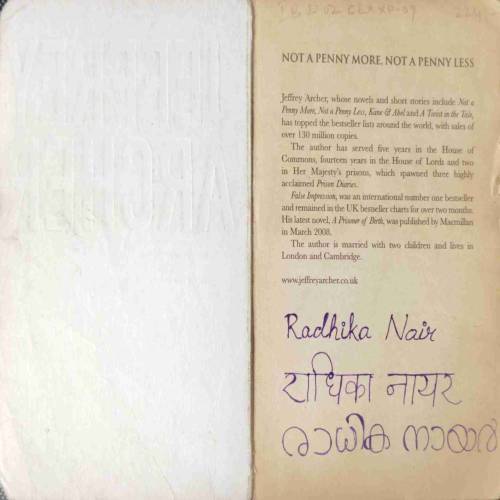 NOT A PENNY MORE, NOT A PENNY LESS
Jeffrey Archer, whose novels and short stories include Not a
Penny More, Not a Penny Less, Kane & Abel and A Twist in the Tale,
has topped the bestseller lists around the world, with sales of
over 130 million copies.
The author has served five years in the House of
Commons, fourteen years in the House of Lords and two
in Her Majesty's prisons, which spawned three highly
acclaimed Prison Diaries.
False Impression, was an international number one bestseller
and remained in the UK bestseller charts for over two months.
His latest novel, A Prisoner of Birth, was published by Macmillan
in March 2008.
The author is married with two children and lives in
London and Cambridge.
www.jeffreyarcher.co.uk
Radhika Nair
राधिका नायर
രാധിക നായർ